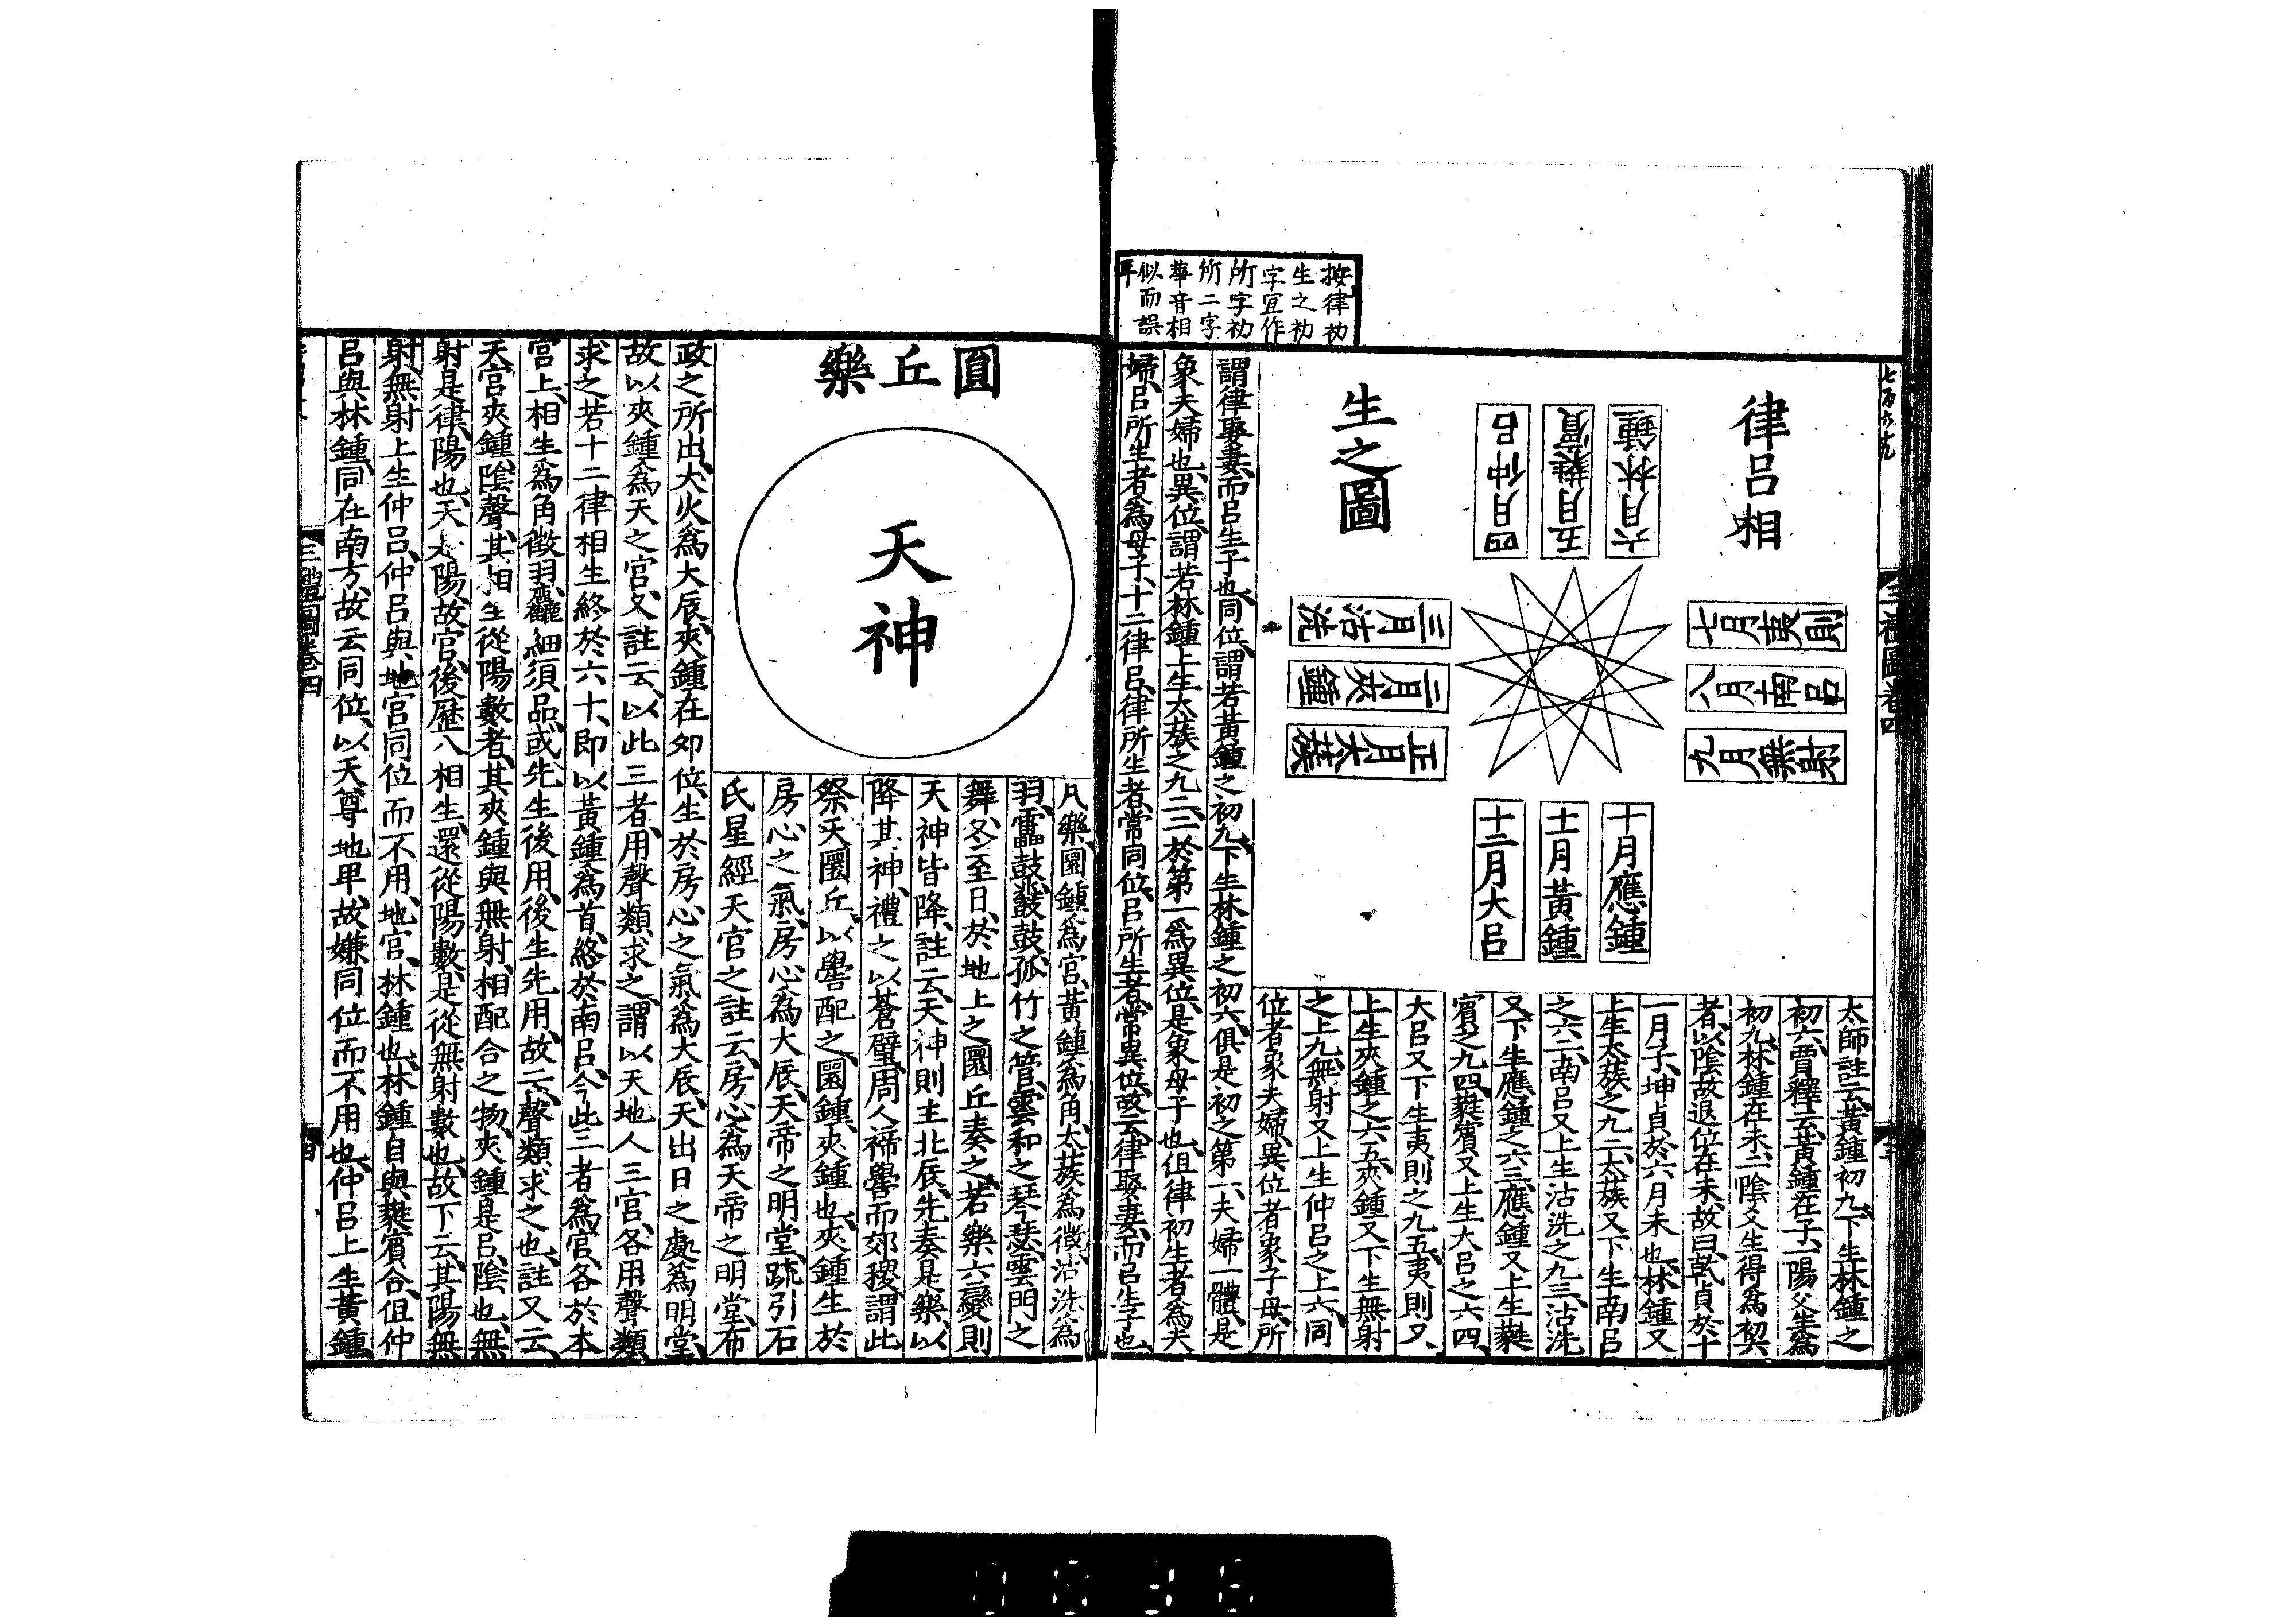 按律初
生之初
字宜作
所字初
所二字
華音相
似而誤
耳
律呂相
生之圖
四月仲呂
五月蕤賓
六月林鍾
七月夷則
八月南呂
九月無射
十月應鍾
十一月黃鍾
十二月大呂
正月太蔟
二月夾鍾
三月沽洗
太師註云黃鍾初九下生林鍾之
初六賈釋云黃鍾在子一陽父生爲
初九林鍾在未二陰父生得爲初六
者以陰故退位在未故曰乾貞於十
一月子坤貞於六月未也林鍾又
上生太蔟之九二太蔟又下生南呂
之六二南呂又上生沽洗之九三沽洗
又下生應鍾之六三應鍾又上生蕤
賓之九四蕤賓又上生大呂之六四
大呂又下生夷則之九五夷則又
上生夾鍾之六五夾鍾又下生無射
之上九無射又上生仲呂之上六同
位者象夫婦異位者象子母所
謂律娶妻而呂生子也同位謂若黃鍾之初九下生林鍾之初六俱是初之第一夫婦一體是
象夫婦也異位謂若林鍾上生太蔟之九二二於第一爲異位是象母子也但律初生者爲夫
婦呂所生者爲母子十二律呂律所生者常同位呂所生者常異位故云律娶妻而呂生子也
圓丘樂
天神
凡樂圜鍾爲宮黃鍾爲角太蔟爲徵沽洗爲
羽靁鼓靁鼗孤竹之管雲和之琴瑟雲門之
舞冬至日於地上之圜丘奏之若樂六變則
天神皆降註云天神則主北辰先奏是樂以
降其神禮之以蒼璧周人禘嚳而郊稷謂此
祭天圜丘以嚳配之圜鍾夾鍾也夾鍾生於
房心之氣房心爲大辰天帝之明堂疏引石
氏星經天官之註云房心爲天帝之明堂布
政之所出大火爲大辰夾鍾在卯位生於房心之氣爲大辰天出日之處爲明堂
故以夾鍾爲天之宮又註云以此三者用聲類求之謂以天地人三宮各用聲類
求之若十二律相生終於六十即以黃鍾爲首終於南呂今此三者爲宮各於本
宮上相生爲角徵羽麤細須品或先生後用後生先用故云聲類求之也註又云
天宮夾鍾陰聲其相生從陽數者其夾鍾與無射相配合之物夾鍾是呂陰也無
射是律陽也天是陽故宮後歷八相生還從陽數是從無射數也故下云其陽無
射無射上生仲呂仲呂與地宮同位而不用地官林鍾也林鍾自與蕤賓合但仲
呂與林鍾同在南方故云同位以天尊地卑故嫌同位而不用也仲呂上生黃鍾
三禮圖卷四
四